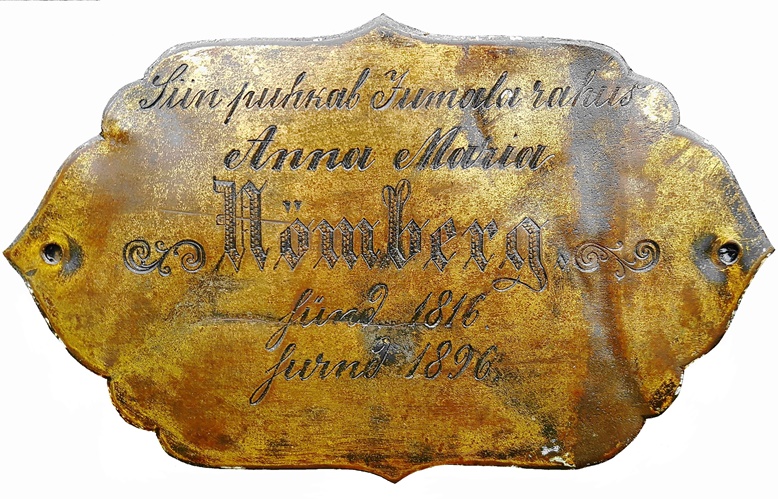 Siin puhkab Jumala rahus
Anna Maria
Nömberg.
sünd 1816
surnd 1896.